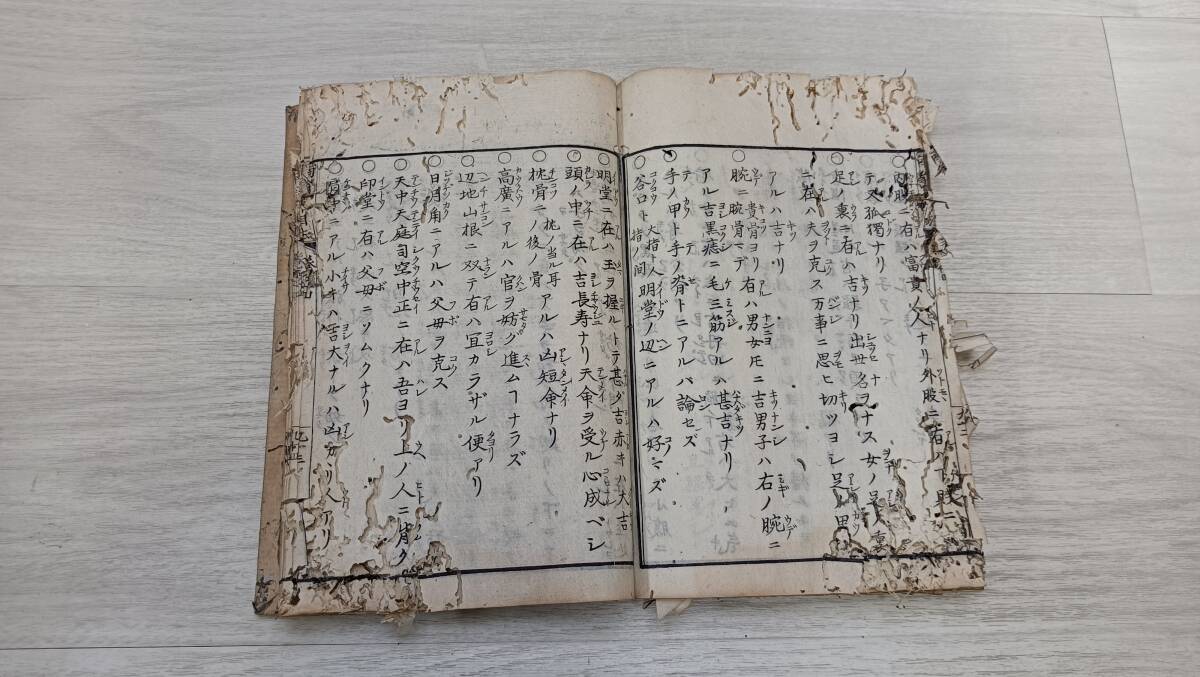 ○内股ニ有ハ富貴ノ人ナリ外股ニ有ハ下賎ニ
テ又孤獨ナリ
○足ノ裏ニ有ハ吉ナリ出世名ヲナス女ノ足ノ裏
ニ在ハ夫ヲ克ス万事ニ思ヒ切ツヨシ足ノ甲ニ
アルハ吉ナリ
○腕ニ貴骨ヨリ有ハ男女モニ吉男子ハ右ノ腕ニ
腕骨マデ
アル吉黒痣ニ毛三筋アルハ甚吉ナリ
○手ノ甲ト手ノ脊トニアルハ論セズ
○谷口ト大指ト人指ノ間明堂ノ辺ニアルハ好マズ
○明堂ニ在ハ玉ヲ握ルトテ甚ダ吉赤キハ大吉
○頭ノ中ニ在ハ吉長寿ナリ天命ヲ受ル心成ベシ
○枕骨ニノ後ノ骨枕ノ当ル耳アルハ凶短命ナリ
○高廣ニアルハ官ヲ妨グ進ムヿナラズ
○辺地山根ニ双テ有ハ宜カラザル便アリ
○日月角ニアルハ父母ヲ克ス
○天中天庭司空中正ニ在ハ吾ヨリ上ノ人ニ背ク
○印堂ニ右ハ父母ニソムクナリ
ニアル小キハ吉大ナルハ凶カリ人アリ